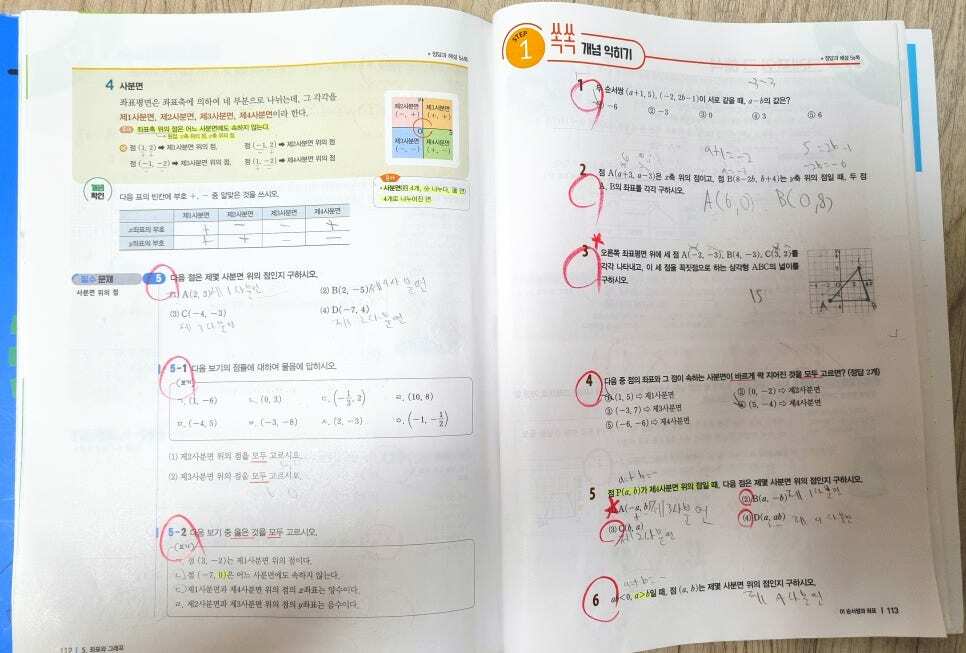 4 사분면
좌표평면은 좌표축에 의하여 네 부분으로 나뉘는데, 그 각각을
제1사분면, 제2사분면, 제3사분면, 제4사분면이라 한다.
좌표축 위의 점은 어느 사분면에도 속하지 않는다.
점 (1, 2) ➡ 제1사분면 위의 점, 점 (-1, 2) ➡ 제2사분면 위의 점
점 (-1, -2) ➡ 제3사분면 위의 점, 점 (1, -2) ➡ 제4사분면 위의 점
제2사분면 제1사분면
(-, +) (+, +)
제3사분면 제4사분면
(-, -) (+, -)
용어
• 사분면(四 4개, 分 나누다, 面 면)
4개로 나누어진 면
개념 확인
다음 표의 빈칸에 부호 +, - 중 알맞은 것을 쓰시오.
제1사분면 제2사분면 제3사분면 제4사분면
x좌표의 부호 + - - +
y좌표의 부호 + + - -
필수 문제 5 다음 점은 제몇 사분면 위의 점인지 구하시오.
사분면 위의 점
(1) A(2, 3) 제1사분면 (2) B(2, -5) 제4사분면
(3) C(-4, -3) (4) D(-7, 4)
제3사분면 제2사분면
5-1 다음 보기의 점들에 대하여 물음에 답하시오.
보기
ㄱ. (1, -6) ㄴ. (0, 3) ㄷ. (-1/3, 2) ㄹ. (10, 8)
ㅁ. (-4, 5) ㅂ. (-3, -8) ㅅ. (2, -3) ㅇ. (-1, -1/2)
(1) 제2사분면 위의 점을 모두 고르시오.
(2) 제3사분면 위의 점을 모두 고르시오.
5-2 다음 보기 중 옳은 것을 모두 고르시오.
보기
ㄱ. 점 (3, -2)는 제1사분면 위의 점이다.
ㄴ. 점 (-7, 0)은 어느 사분면에도 속하지 않는다.
ㄷ. 제1사분면과 제4사분면 위의 점의 x좌표는 양수이다.
ㄹ. 제2사분면과 제3사분면 위의 점의 y좌표는 음수이다.
112 | 5. 좌표와 그래프
STEP 1 쏙쏙 개념 익히기
• 정답과 해설 56쪽
1 두 순서쌍 (a+1, 5), (-2, 2b-1)이 서로 같을 때, a-b의 값은?
① -6 ② -3 ③ 0 ④ 3 ⑤ 6
a+1=-2 5=2b-1
a=-3 -2b=-6
2 점 A(a+3, a-3)은 x축 위의 점이고, 점 B(8-2b, b+4)는 y축 위의 점일 때, 두 점
A, B의 좌표를 각각 구하시오.
A(6,0) B(0,8)
3 오른쪽 좌표평면 위에 세 점 A(-2, -3), B(4, -3), C(3, 2)를
각각 나타내고, 이 세 점을 꼭짓점으로 하는 삼각형 ABC의 넓이를
구하시오.
15
4 다음 중 점의 좌표와 그 점이 속하는 사분면이 바르게 짝 지어진 것을 모두 고르면? (정답 2개)
① (1, 5) ⇨ 제1사분면 ② (0, -2) ⇨ 제3사분면
③ (-3, 7) ⇨ 제3사분면 ④ (5, -4) ⇨ 제4사분면
⑤ (-6, -6) ⇨ 제4사분면
5 점 P(a, b)가 제4사분면 위의 점일 때, 다음 점은 제몇 사분면 위의 점인지 구하시오.
A(-a, b) 제3사분면 (2) B(a, -b) 제1사분면
(3) C(b, a) (4) D(a, ab) 제4사분면
제2사분면
6 ab<0, a>b일 때, 점 (a, b)는 제몇 사분면 위의 점인지 구하시오.
제4사분면
01 순서쌍과 좌표 | 113